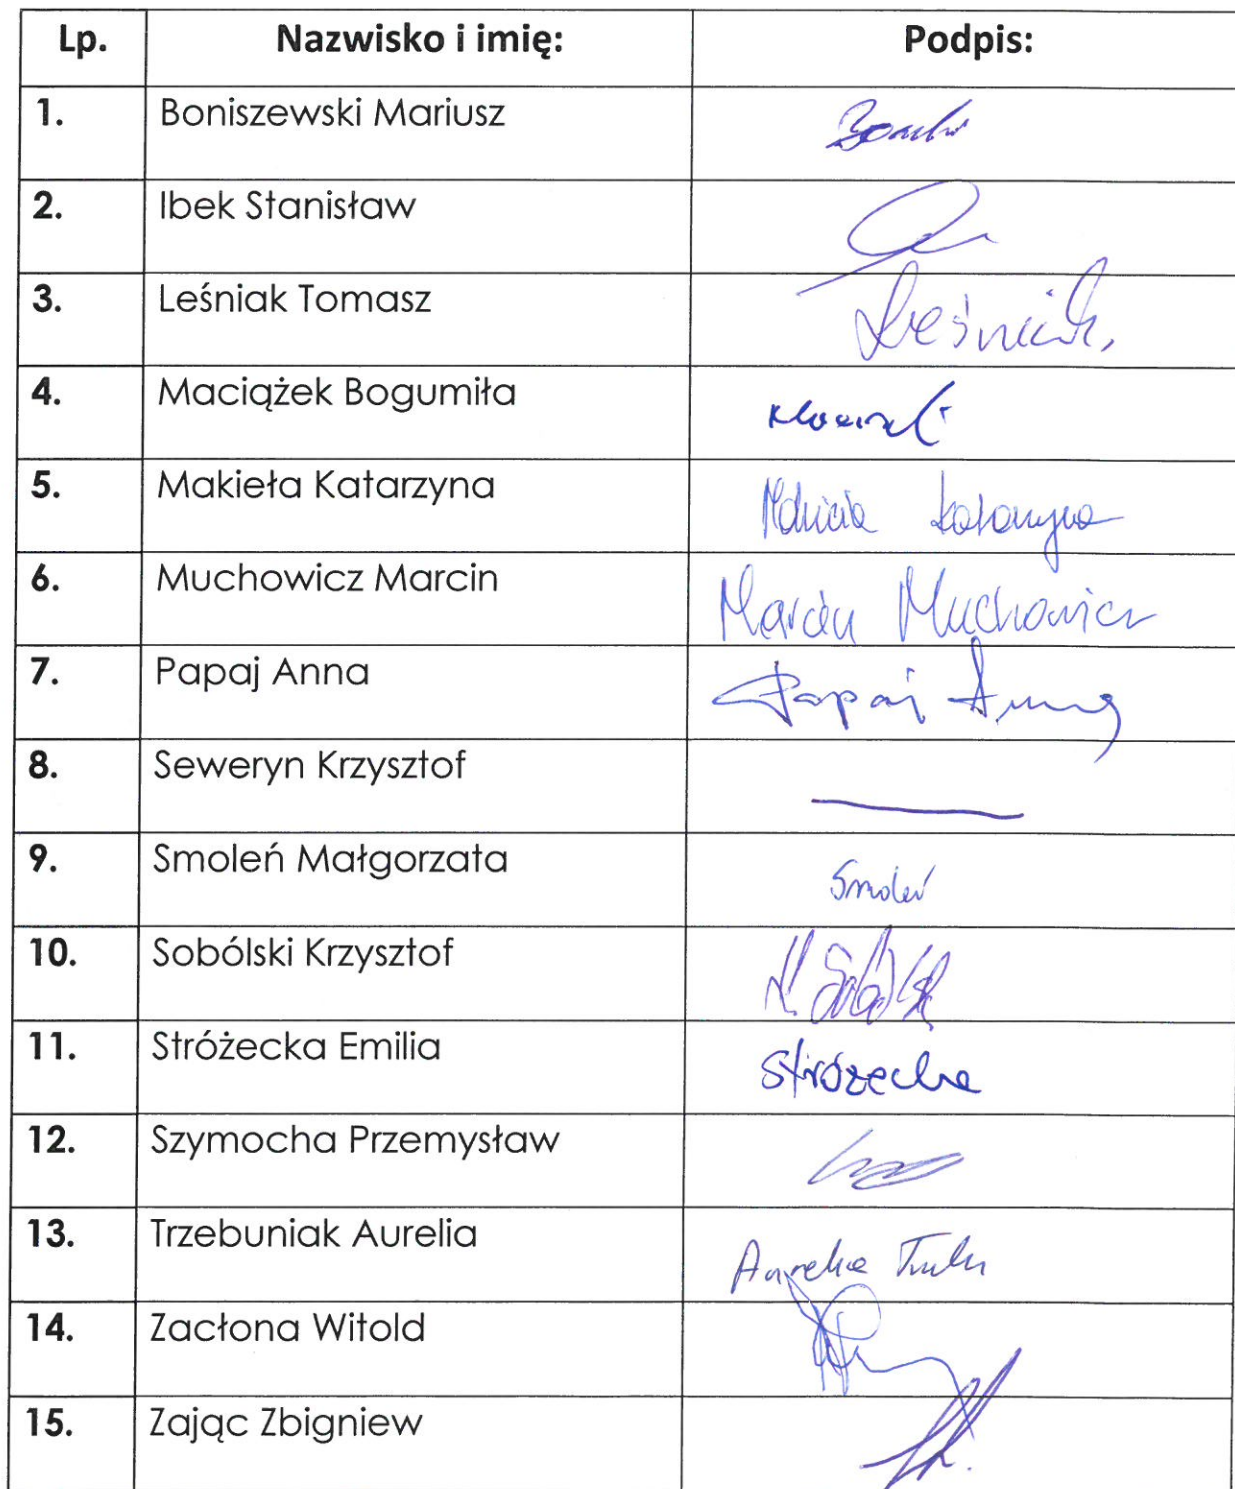 Lp. Nazwisko i imię: Podpis:
1. Boniszewski Mariusz
2. Ibek Stanisław
3. Leśniak Tomasz Leśniak
4. Maciążek Bogumiła
5. Makieła Katarzyna Makieła Katarzyna
6. Muchowicz Marcin Marcin Muchowicz
7. Papaj Anna Papaj Anna
8. Seweryn Krzysztof
9. Smoleń Małgorzata Smoleń
10. Sobólski Krzysztof
11. Stróżecka Emilia Stróżecka
12. Szymocha Przemysław
13. Trzebuniak Aurelia Aurelia
14. Zacłona Witold
15. Zając Zbigniew